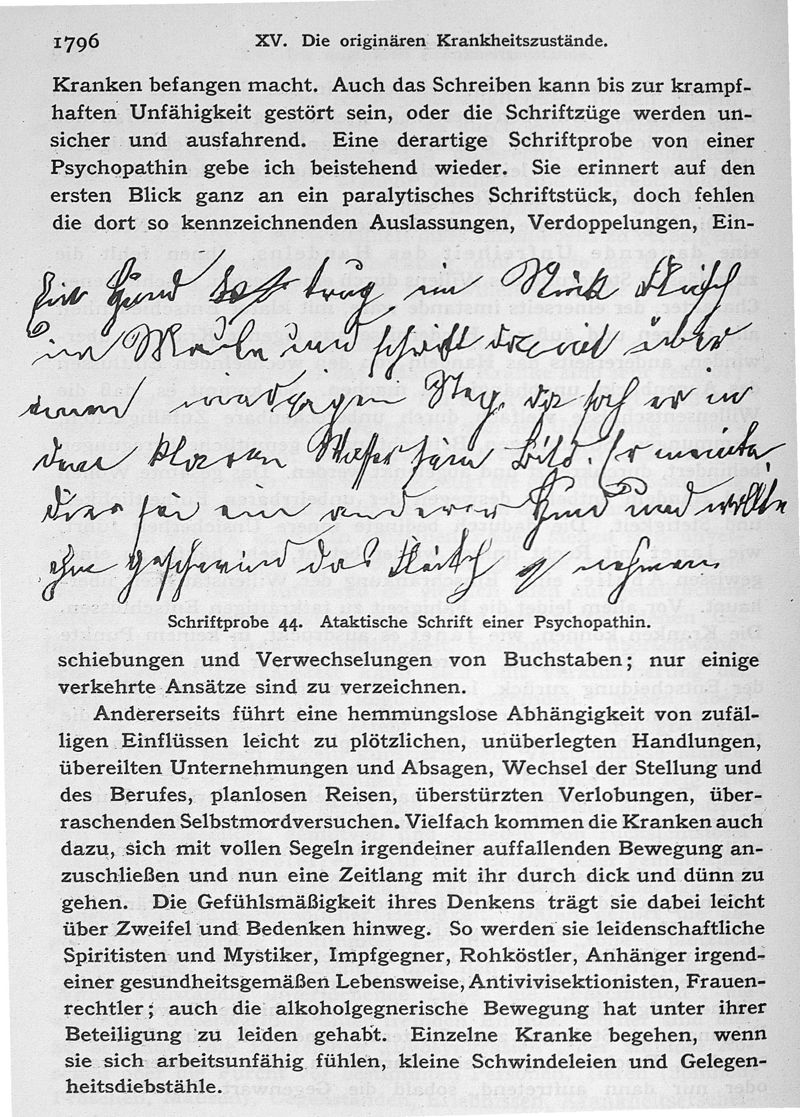 1796 XV. Die originären Krankheitszustände.
Kranken befangen macht. Auch das Schreiben kann bis zur krampf-
haften Unfähigkeit gestört sein, oder die Schriftzüge werden un-
sicher und ausfahrend. Eine derartige Schriftprobe von einer
Psychopathin gebe ich beistehend wieder. Sie erinnert auf den
ersten Blick ganz an ein paralytisches Schriftstück, doch fehlen
die dort so kennzeichnenden Auslassungen, Verdoppelungen, Ein-
Ein Hund trug ein Stück Fleisch
im Maule und schritt damit über
einen niedrigen Steg, da sah er in
dem klaren Wasser sein Bild. Er meinte,
dies sei ein anderer Hund und wollte
ihm geschwind das Fleisch nehmen.
Schriftprobe 44. Ataktische Schrift einer Psychopathin.
schiebungen und Verwechselungen von Buchstaben; nur einige
verkehrte Ansätze sind zu verzeichnen.
Andererseits führt eine hemmungslose Abhängigkeit von zufäl-
ligen Einflüssen leicht zu plötzlichen, unüberlegten Handlungen,
übereilten Unternehmungen und Absagen, Wechsel der Stellung und
des Berufes, planlosen Reisen, überstürzten Verlobungen, über-
raschenden Selbstmordversuchen. Vielfach kommen die Kranken auch
dazu, sich mit vollen Segeln irgendeiner auffallenden Bewegung an-
zuschließen und nun eine Zeitlang mit ihr durch dick und dünn zu
gehen. Die Gefühlsmäßigkeit ihres Denkens trägt sie dabei leicht
über Zweifel und Bedenken hinweg. So werden sie leidenschaftliche
Spiritisten und Mystiker, Impfgegner, Rohköstler, Anhänger irgend-
einer gesundheitsgemäßen Lebensweise, Antivivisektionisten, Frauen-
rechtler; auch die alkoholgegnerische Bewegung hat unter ihrer
Beteiligung zu leiden gehabt. Einzelne Kranke begehen, wenn
sie sich arbeitsunfähig fühlen, kleine Schwindeleien und Gelegen-
heitsdiebstähle.